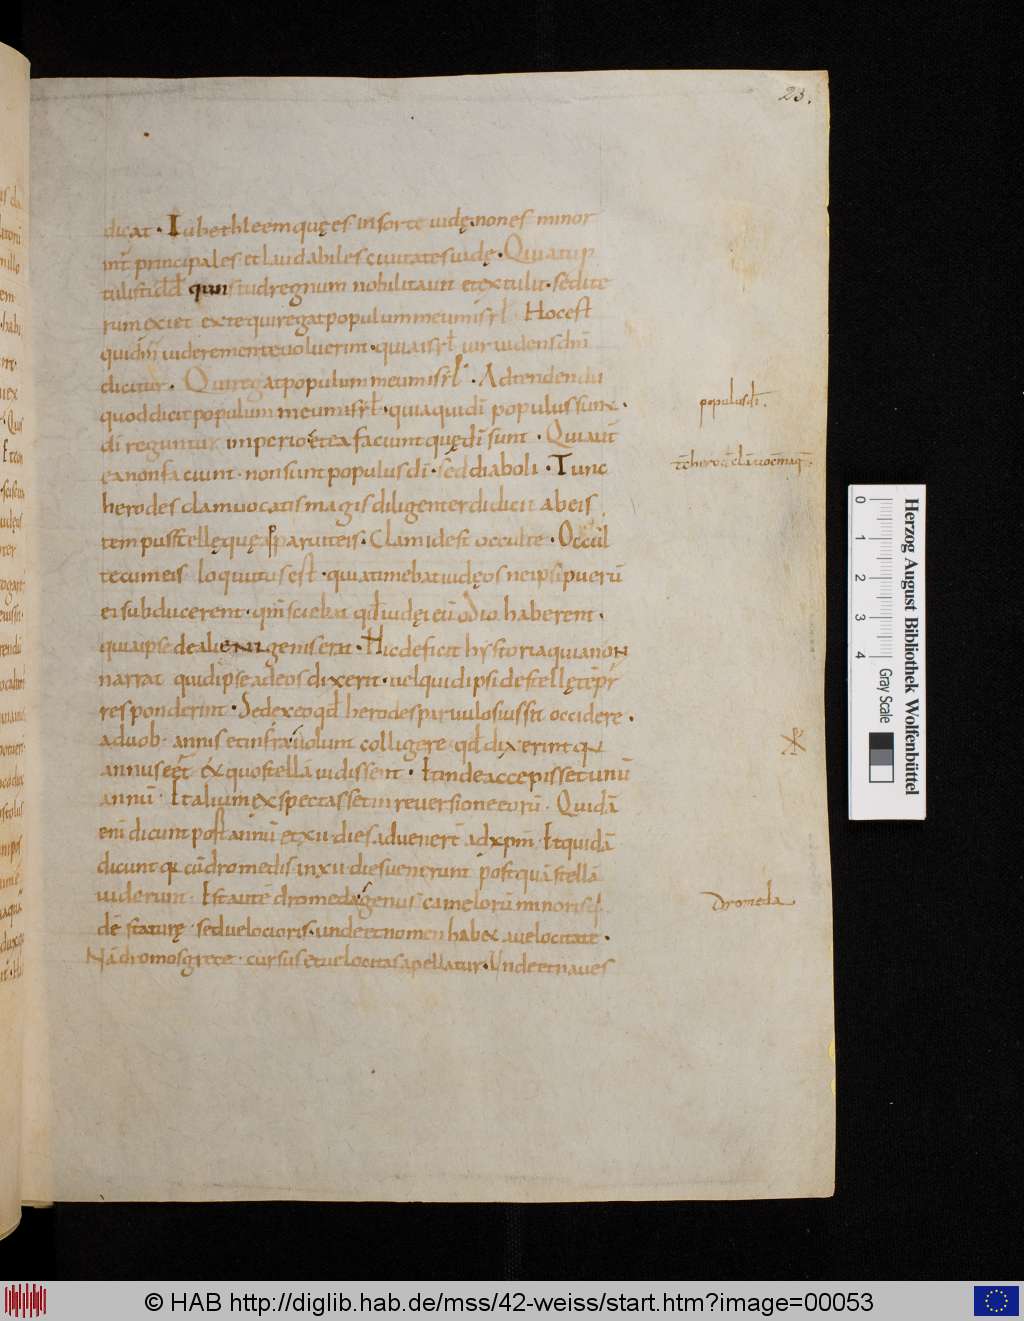 23.
dicat · Tu bethleem quę es in sorte iudę. non es minor
int̄ principales et laudabiles ciuitates iudę · Quia tu p
tulisti dd̄ qui istud regnum nobilitauit et extulit · sed ite
rum exiet ex te qui regat populum meum isrl̄ Hoc est
uidere mente uoluerint · quia isrł uir uidens dm̄
dicitur · Qui regat populum meum isrł · Adtendendū
quod dicit populum meum isrł · quia qui dī populus sunt ·
dī reguntur imperio et ea faciunt quę dī sunt · Qui aut̄
ea non faciunt · non sunt populus dī · sed diaboli · Tunc
herodes clam uocatis magis diligenter didicit ab eis
tempus stellę quę apparuit eis · Clam id est occulte · Occul
te cum eis loquutus est · quia timebat iudęos ne ipsi puerū
ei subducerent · qm̄ sciebat qd̄ iudęi eū odio haberent ·
quia ipse de alienigenis erat · Hic deficit hystoria quia non
narrat quid ipse ad eos dixerit · uel quid ipsi de stellę tēpr̄
responderint · Sed ex eo qd̄ herodes paruulos iussit occidere ·
a duob · annis et infra uolunt colligere · qd̄ dixerint qƺ
annus eēt ex quo stellā uidissent · Et inde accepisset unū
annū · Et alium exspectasset in reuersione eorū · Quidā
enī dicunt post annū et xii · dies aduenerī ad xpm̄ · Et quidā
dicunt qƺ cū dromedis in xii · dies uenerunt postquā stellā
uiderunt · Est autē dromeda genus camelorū minoris q
dē staturę · sed uelocioris · unde et nomen habet a uelocitate ·
Nā dromos grece · cursus et uelocitas apellatur · Unde et naues
populus dī.
Dromeda
0
1
2
3
4
Gray Scale
Herzog August Bibliothek Wolfenbüttel
© HAB http://diglib.hab.de/mss/42-weiss/start.htm?image=00053